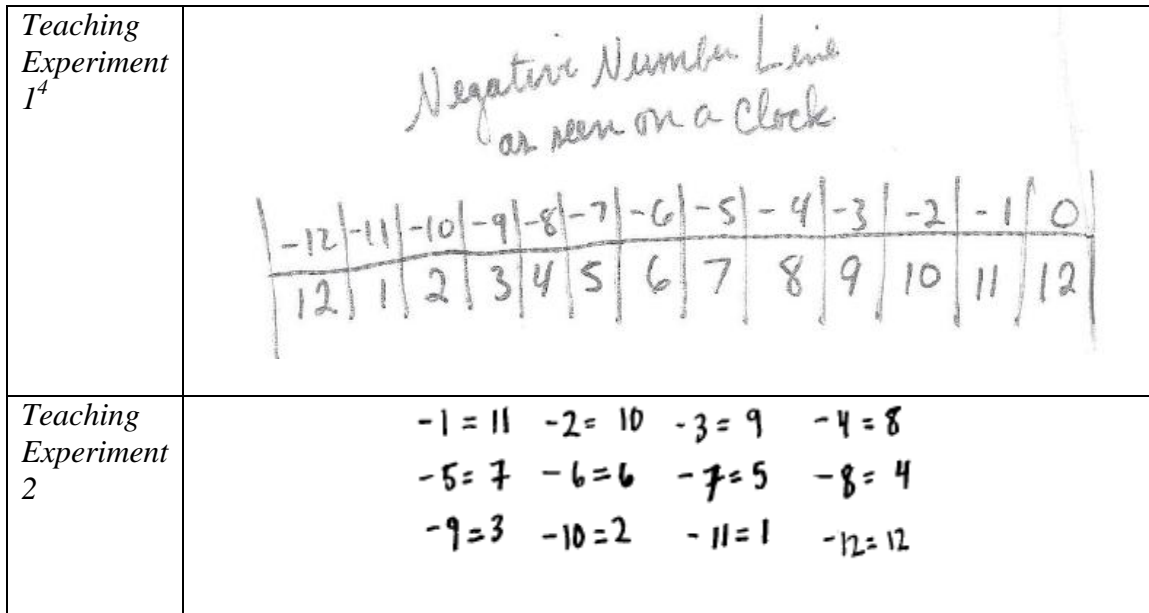 Teaching
Experiment
1⁴
Negative Number Line
as seen on a Clock
-12 -11 -10 -9 -8 -7 -6 -5 -4 -3 -2 -1 0
12 1 2 3 4 5 6 7 8 9 10 11 12
Teaching
Experiment
2
-1 = 11 -2 = 10 -3 = 9 -4 = 8
-5 = 7 -6 = 6 -7 = 5 -8 = 4
-9 = 3 -10 = 2 -11 = 1 -12 = 12